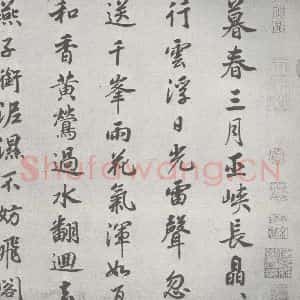 暮春三月巫峽長晶、
行雲浮日光雷聲忽
送千峯雨花氣渾如百
和香黃鶯過水翻迴去
燕子銜泥濕不妨飛閣
Shufawang.CN